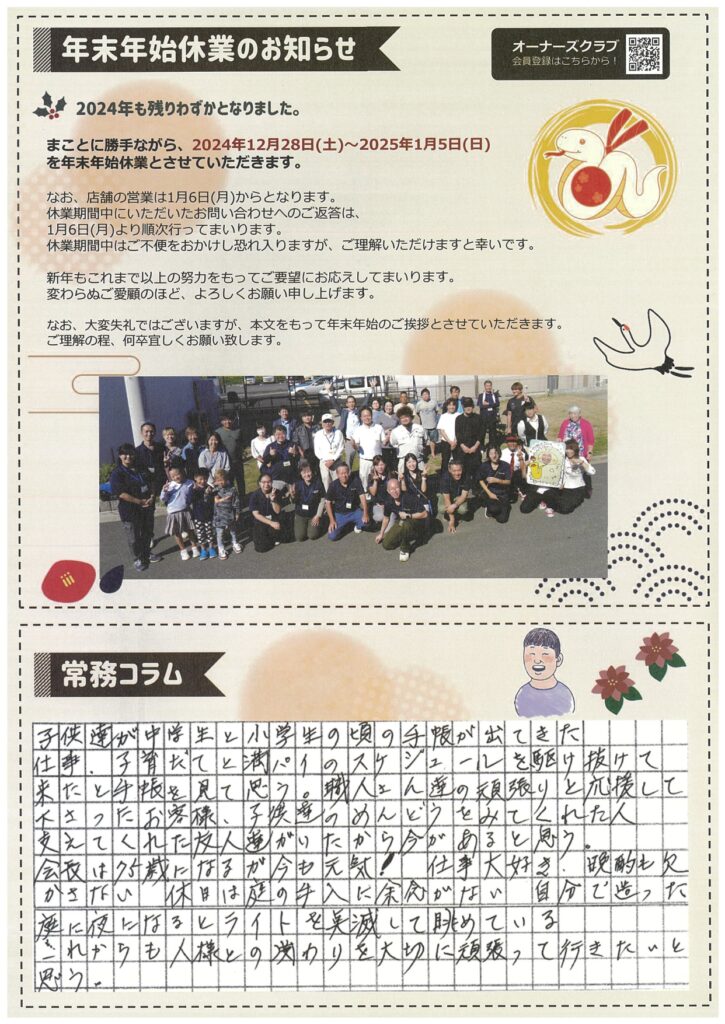 年末年始休業のお知らせ
オーナーズクラブ
会員登録はこちらから！
2024年も残りわずかとなりました。
まことに勝手ながら、2024年12月28日(土)～2025年1月5日(日)
を年末年始休業とさせていただきます。
なお、店舗の営業は1月6日(月)からとなります。
休業期間中にいただいたお問い合わせへのご返答は、
1月6日(月)より順次行ってまいります。
休業期間中はご不便をおかけし恐れ入りますが、ご理解いただけますと幸いです。
新年もこれまで以上の努力をもってご要望にお応えしてまいります。
変わらぬご愛顧のほど、よろしくお願い申し上げます。
なお、大変失礼ではございますが、本文をもって年末年始のご挨拶とさせていただきます。
ご理解の程、何卒宜しくお願い致します。
常務コラム
子供達が中学生と小学生の頃の手帳が出てきた
仕事、子育だてと満パイのスケジュールを駆け抜けて
来たと手帳を見て思う。職人さん達の頑張りと応援して
下さったお客様、子供達のめんどうをみてくれた人
支えてくれた友人達がいたから今があると思う。
会長は75歳になるが今も元気！ 仕事大好き 晩酌も欠
かさない 休日は庭の手入に余念がない 自分で造った
庭に夜になるとライトを点滅して眺めている
これからも人様との関わりを大切に頑張って行きたいと
思う。